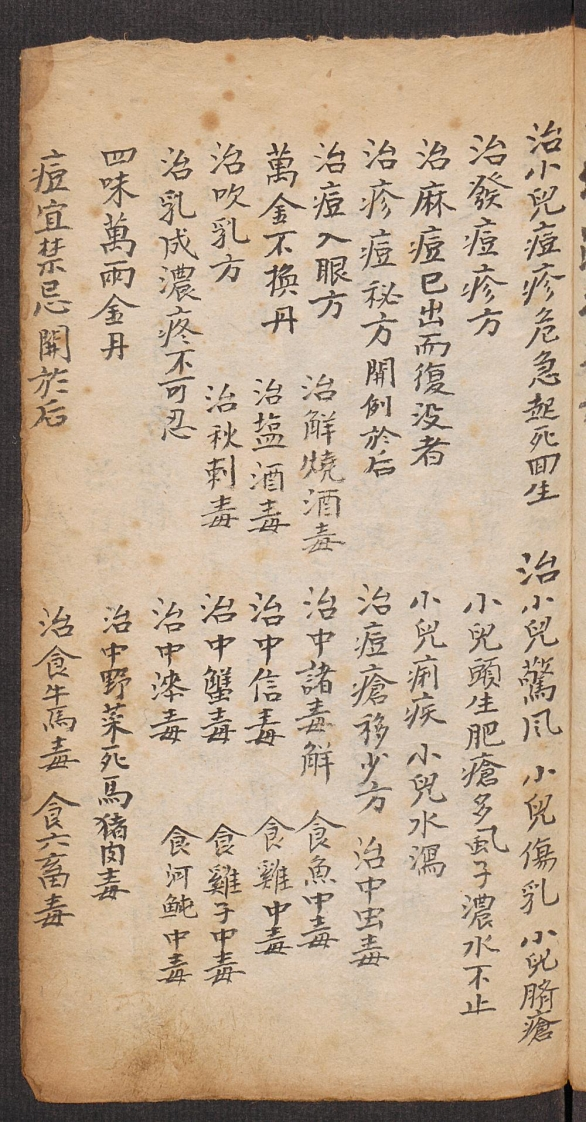 治小兒痘疹危急起死回生　治小兒驚风　小兒傷乳　小兒臍瘡
治發痘疹方　小兒頭生肥瘡多虱子濃水不止
治麻痘已出而復没者　小兒痢疾　小兒水瀉
治疹痘秘方開例於后　治痘瘡移少方　治中虫毒
治痘入眼方　治解燒酒毒　治中諸毒解　食魚中毒
萬金不換丹　治塩酒毒　治中信毒　食雞中毒
治吹乳方　治秋刺毒　治中蟹毒　食雞子中毒
治乳成濃疼不可忍　治中毒　食河魨中毒
四味萬兩金丹　治中野菜死馬猪肉毒
痘宜禁忌開於后　治食牛馬毒　食六畜毒